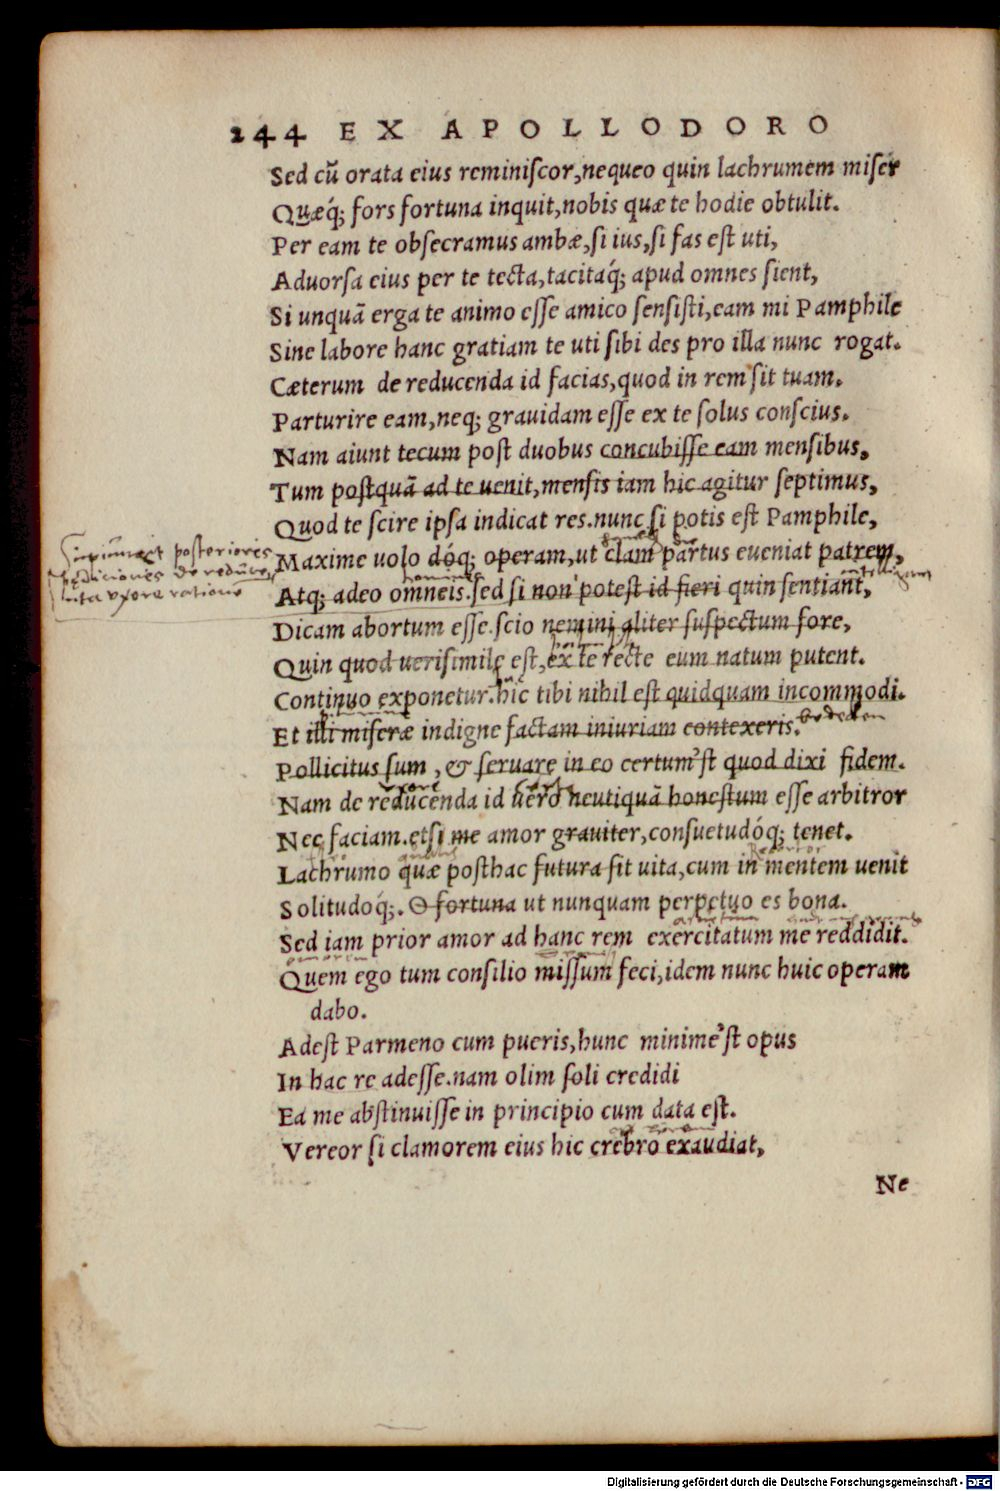 244 EX APOLLODORO
Sed cũ orata eius reminiſcor,nequeo quin lachrumem miſer
Quæq́; fors fortuna inquit,nobis quæ te hodie obtulit.
Per eam te obſecramus ambæ,ſi ius,ſi fas eſt uti,
Aduorſa eius per te tecta,tacitaq́; apud omnes ſient,
Si unquã erga te animo eſſe amico ſenſiſti,eam mi Pamphile
Sine labore hanc gratiam te uti ſibi des pro illa nunc rogat.
Cæterum de reducenda id facias,quod in rem ſit tuam.
Parturire eam,neq; grauidam eſſe ex te ſolus conſcius.
Nam aiunt tecum poſt duobus concubiſſe eam menſibus,
Tum poſtquã ad te uenit,menſis iam hic agitur ſeptimus,
Quod te ſcire ipſa indicat res.nunc ſi potis eſt Pamphile,
posteriores
Maxime uolo dóq; operam,ut clam partus eueniat patrem,
Atq; adeo omneis.ſed ſi non potest id fieri quin ſentiant,
uxore
Dicam abortum eſſe.ſcio nemini aliter ſuſpectum fore,
Quin quod ueriſimile eſt,ex te recte eum natum putent.
Continuo exponetur.hic tibi nihil eſt quidquam incommodi.
Et illi miſeræ indigne factam iniuriam contexeris.
Pollicitus ſum , & ſeruare in eo certum'ſt quod dixi fidem.
Nam de reducenda id uero neutiquã honeſtum eſſe arbitror
Nec faciam.etſi me amor grauiter,conſuetudóq; tenet.
Lachrumo quæ poſthac futura ſit uita,cum in mentem uenit
Solitudoq́;. O fortuna ut nunquam perpetuo es bona.
Sed iam prior amor ad hanc rem exercitatum me reddidit.
Quem ego tum conſilio miſſum feci,idem nunc huic operam
dabo.
Adeſt Parmeno cum pueris,hunc minime'ſt opus
In hac re adeſſe.nam olim ſoli credidi
Ea me abſtinuiſſe in principio cum data eſt.
Vereor ſi clamorem eius hic crebro exaudiat,
Ne
Digitalisierung gefördert durch die Deutsche Forschungsgemeinschaft - DFG